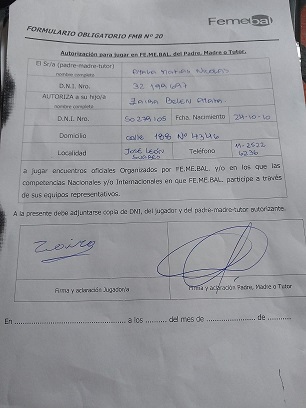 Femebal
FORMULARIO OBLIGATORIO FMB Nº 20
Autorización para jugar en FE.ME.BAL. del Padre, Madre o Tutor.
El Sr/a (padre-madre-tutor)
nombre completo
D.N.I. Nro. 32 199 697
AUTORIZA a su hijo/a
nombre completo
Zaira Belen
D.N.I. Nro. 50279105 Fcha. Nacimiento 29-10-10
Domicilio calle 188 Nº 4346
Localidad José León Suárez Teléfono 11-2522 6236
a jugar encuentros oficiales Organizados por FE.ME.BAL. y/o en los que las
competencias Nacionales y/o Internacionales en que FE.ME.BAL. participe a través
de sus equipos representativos.
A la presente debe adjuntarse copia de DNI, del jugador y del padre-madre-tutor autorizante.
Zaira
Firma y aclaración Jugador/a Firma y aclaración Padre, Madre o Tutor
En ........................ a los .......... del mes de .................. de ..........